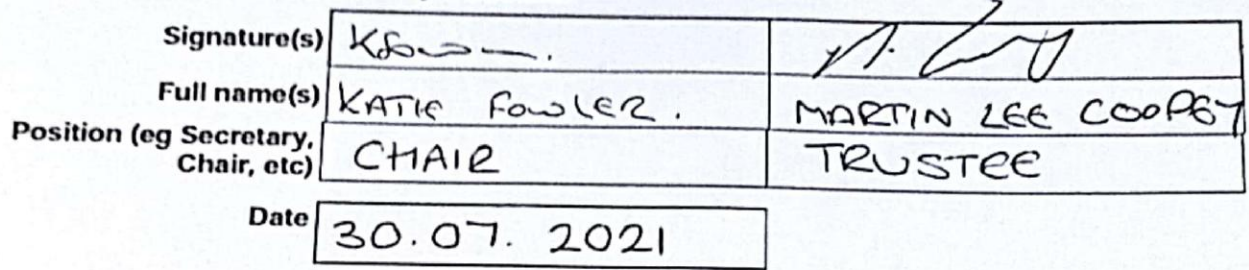 Signature(s)
Full name(s) KATIE FOWLER. MARTIN LEE COOPEY
Position (eg Secretary,
Chair, etc) CHAIR TRUSTEE
Date 30.07. 2021